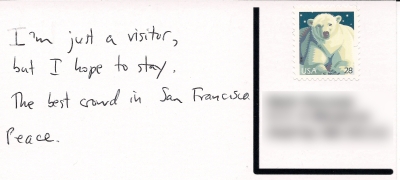 I'm just a visitor,
but I hope to stay.
The best crowd in San Francisco.
Peace.
USA 28